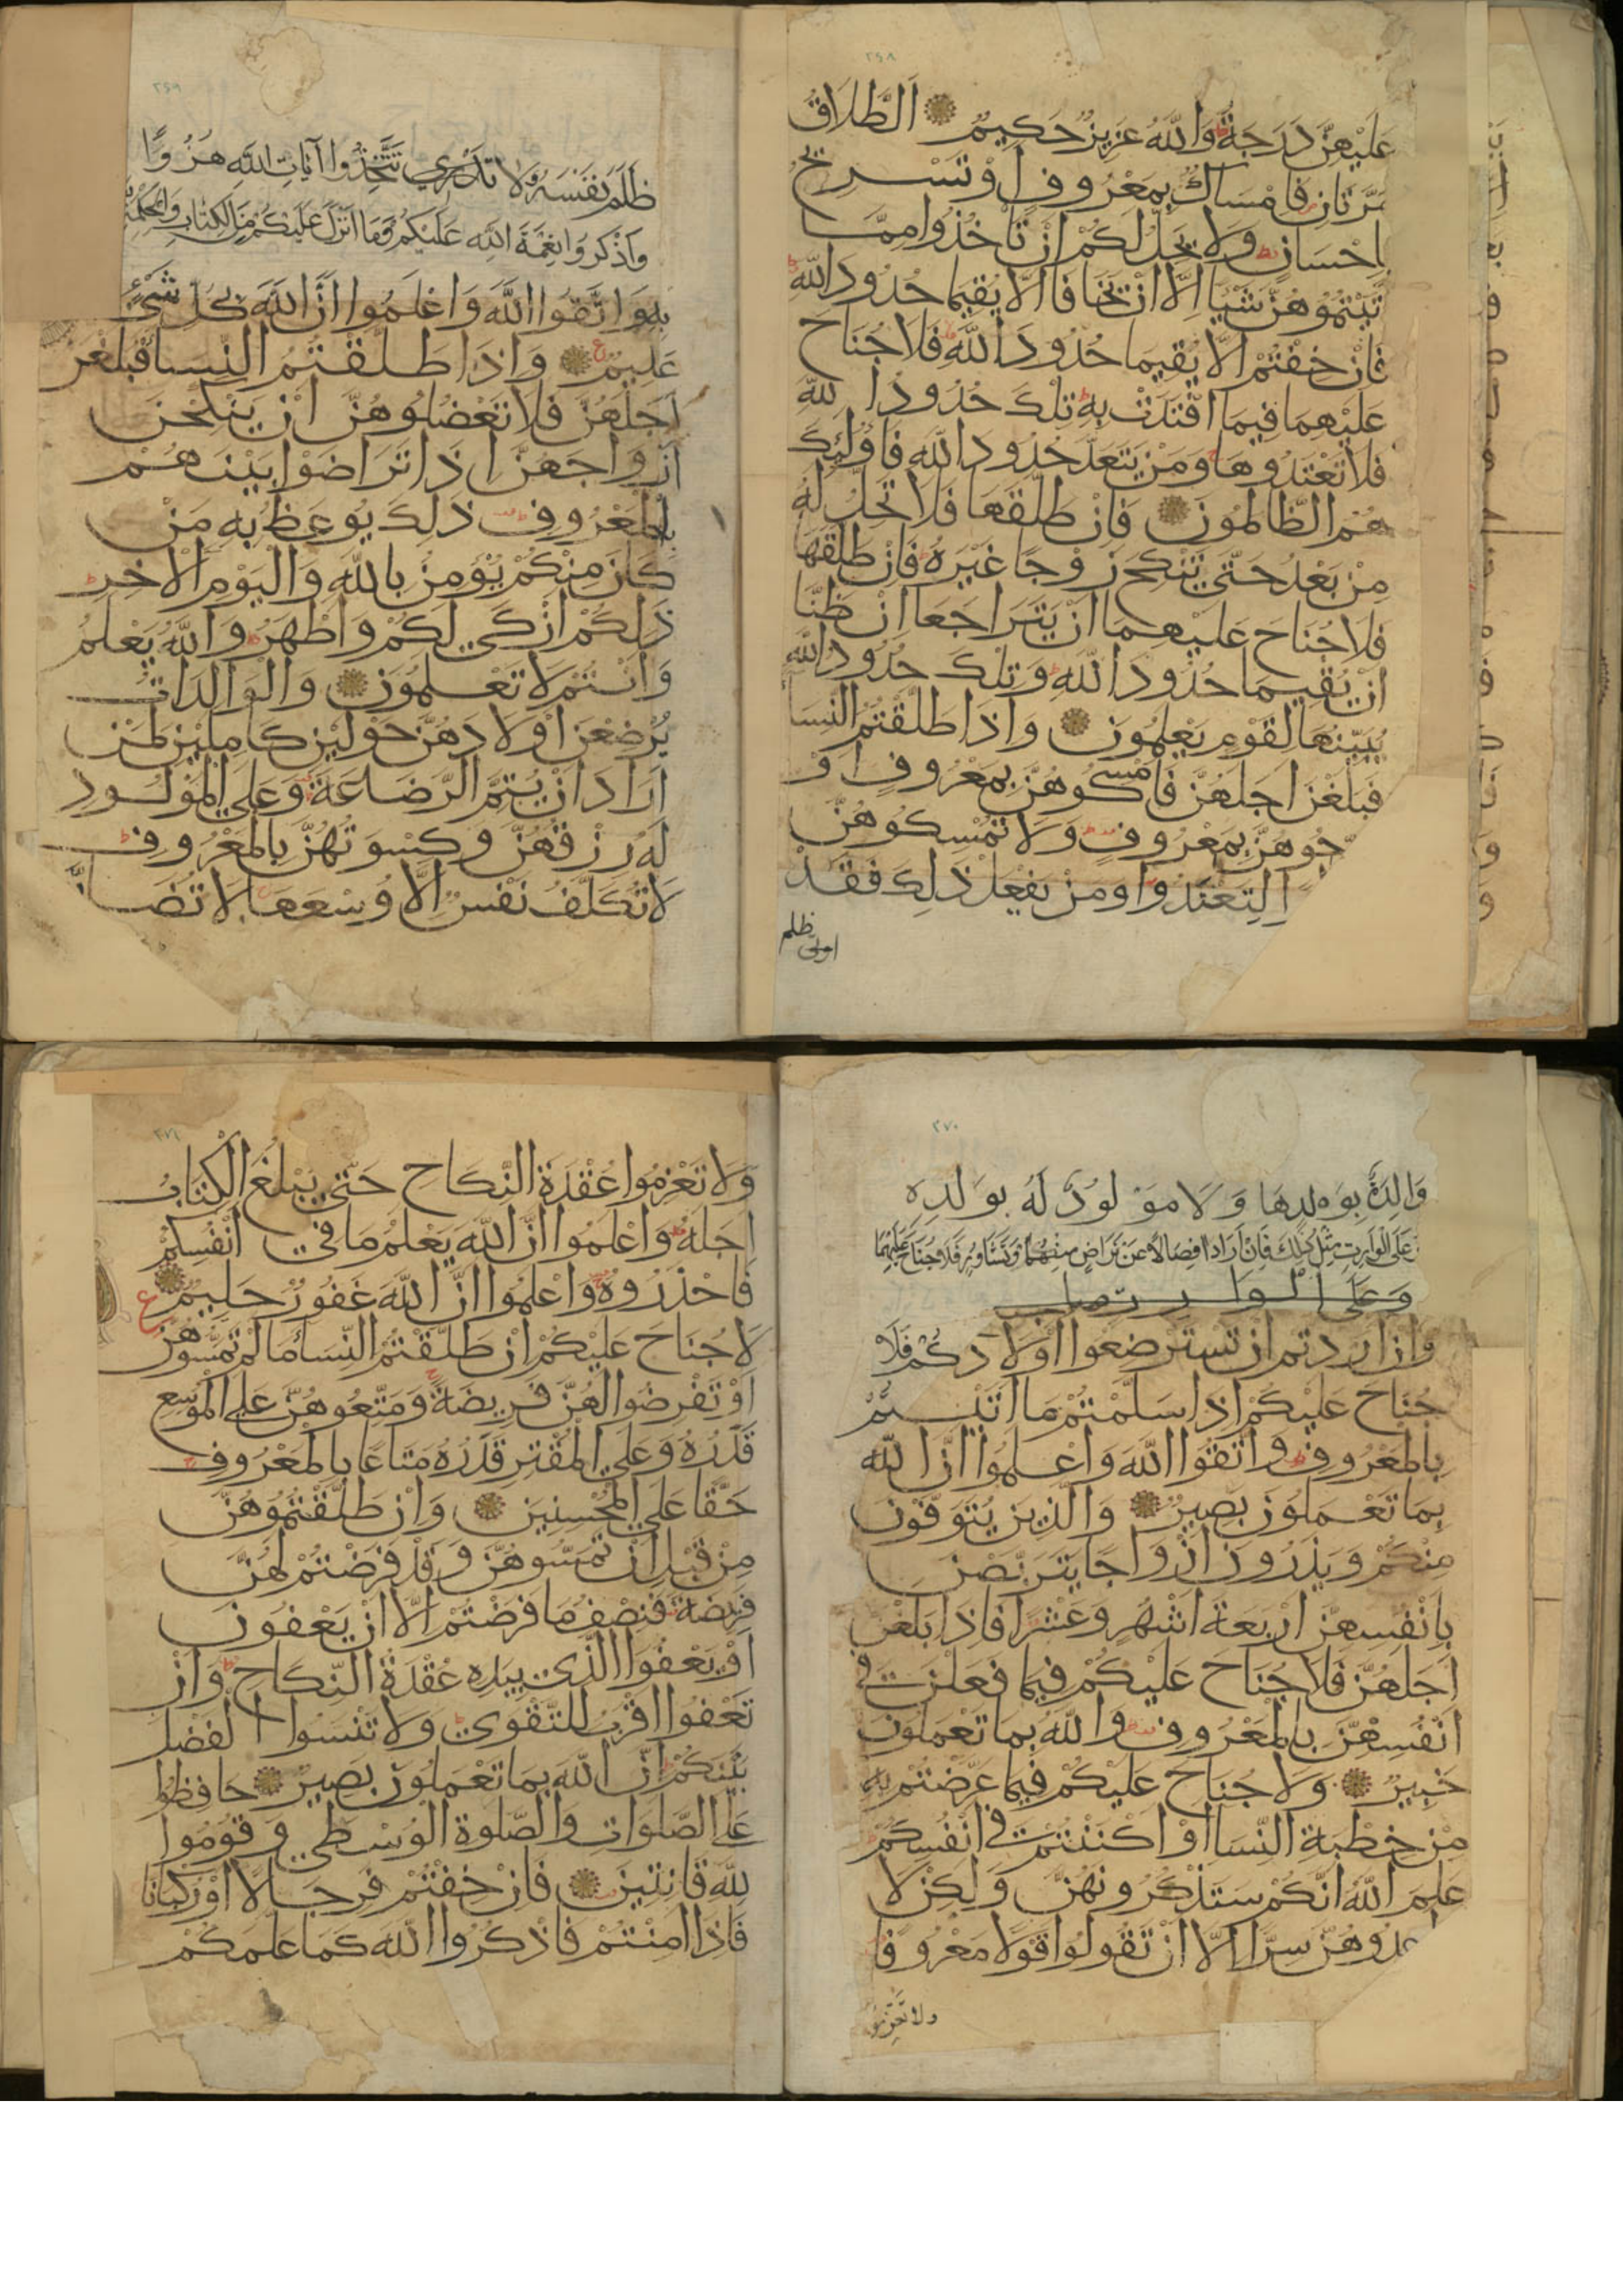 ٢٦٨
عَلَيْهِنَّ دَرَجَةٌ وَاللَّهُ عَزِيزٌ حَكِيمٌ ۝ اَلطَّلَاقُ
مَرَّتَانِ فَاِمْسَاكٌ بِمَعْرُوفٍ اَوْ تَسْرِيحٌ
بِاِحْسَانٍ وَلَا يَحِلُّ لَكُمْ اَنْ تَاْخُذُوا مِمَّا
اٰتَيْتُمُوهُنَّ شَيْـًٔا اِلَّا اَنْ يَخَافَا اَلَّا يُقِيمَا حُدُودَ اللَّهِ
فَاِنْ خِفْتُمْ اَلَّا يُقِيمَا حُدُودَ اللَّهِ فَلَا جُنَاحَ
عَلَيْهِمَا فِيمَا افْتَدَتْ بِهِ تِلْكَ حُدُودُ اللَّهِ
فَلَا تَعْتَدُوهَا وَمَنْ يَتَعَدَّ حُدُودَ اللَّهِ فَاُولٰئِكَ
هُمُ الظَّالِمُونَ ۝ فَاِنْ طَلَّقَهَا فَلَا تَحِلُّ لَهُ
مِنْ بَعْدُ حَتَّى تَنْكِحَ زَوْجًا غَيْرَهُ فَاِنْ طَلَّقَهَا
فَلَا جُنَاحَ عَلَيْهِمَا اَنْ يَتَرَاجَعَا اِنْ ظَنَّا
اَنْ يُقِيمَا حُدُودَ اللَّهِ وَتِلْكَ حُدُودُ اللَّهِ
يُبَيِّنُهَا لِقَوْمٍ يَعْلَمُونَ ۝ وَاِذَا طَلَّقْتُمُ النِّسَا
فَبَلَغْنَ اَجَلَهُنَّ فَاَمْسِكُوهُنَّ بِمَعْرُوفٍ اَوْ
حُوهُنَّ بِمَعْرُوفٍ وَلَا تُمْسِكُوهُنَّ
لِتَعْتَدُوا وَمَنْ يَفْعَلْ ذَلِكَ فَقَدْ
ظلم
٢٦٩
ظَلَمَ نَفْسَهُ وَلَا تَتَّخِذُوا آيَاتِ اللَّهِ هُزُوًا
وَاذْكُرُوا نِعْمَةَ اللَّهِ عَلَيْكُمْ وَمَا اَنْزَلَ عَلَيْكُمْ مِنَ الْكِتَابِ وَالْحِكْمَةِ
بِهِ وَاتَّقُوا اللَّهَ وَاعْلَمُوا اَنَّ اللَّهَ بِكُلِّ شَيْءٍ
عَلِيمٌ ۝ وَاِذَا طَلَّقْتُمُ النِّسَا فَبَلَغْنَ
اَجَلَهُنَّ فَلَا تَعْضُلُوهُنَّ اَنْ يَنْكِحْنَ
اَزْوَاجَهُنَّ اِذَا تَرَاضَوْا بَيْنَهُمْ
بِالْمَعْرُوفِ ذَلِكَ يُوعَظُ بِهِ مَنْ
كَانَ مِنْكُمْ يُؤْمِنُ بِاللَّهِ وَالْيَوْمِ الْاٰخِرِ
ذَلِكُمْ اَزْكَى لَكُمْ وَاَطْهَرُ وَاللَّهُ يَعْلَمُ
وَاَنْتُمْ لَا تَعْلَمُونَ ۝ وَالْوَالِدَاتُ
يُرْضِعْنَ اَوْلَادَهُنَّ حَوْلَيْنِ كَامِلَيْنِ لِمَنْ
اَرَادَ اَنْ يُتِمَّ الرَّضَاعَةَ وَعَلَى الْمَوْلُودِ
لَهُ رِزْقُهُنَّ وَكِسْوَتُهُنَّ بِالْمَعْرُوفِ
لَا تُكَلَّفُ نَفْسٌ اِلَّا وُسْعَهَا لَا تُضَارَّ
٢٧٠
وَالِدَةٌ بِوَلَدِهَا وَلَا مَوْلُودٌ لَهُ بِوَلَدِهِ
وَعَلَى الْوَارِثِ مِثْلُ ذَلِكَ فَاِنْ اَرَادَا فِصَالًا عَنْ تَرَاضٍ مِنْهُمَا وَتَشَاوُرٍ فَلَا جُنَاحَ عَلَيْهِمَا
وَعَلَى الْوَارِثِ
وَاِنْ اَرَدْتُمْ اَنْ تَسْتَرْضِعُوا اَوْلَادَكُمْ فَلَا
جُنَاحَ عَلَيْكُمْ اِذَا سَلَّمْتُمْ مَا اٰتَيْتُمْ
بِالْمَعْرُوفِ وَاتَّقُوا اللَّهَ وَاعْلَمُوا اَنَّ اللَّهَ
بِمَا تَعْمَلُونَ بَصِيرٌ ۝ وَالَّذِينَ يُتَوَفَّوْنَ
مِنْكُمْ وَيَذَرُونَ اَزْوَاجًا يَتَرَبَّصْنَ
بِاَنْفُسِهِنَّ اَرْبَعَةَ اَشْهُرٍ وَعَشْرًا فَاِذَا بَلَغْنَ
اَجَلَهُنَّ فَلَا جُنَاحَ عَلَيْكُمْ فِيمَا فَعَلْنَ فِي
اَنْفُسِهِنَّ بِالْمَعْرُوفِ وَاللَّهُ بِمَا تَعْمَلُونَ
خَبِيرٌ ۝ وَلَا جُنَاحَ عَلَيْكُمْ فِيمَا عَرَّضْتُمْ بِهِ
مِنْ خِطْبَةِ النِّسَا اَوْ اَكْنَنْتُمْ فِي اَنْفُسِكُمْ
عَلِمَ اللَّهُ اَنَّكُمْ سَتَذْكُرُونَهُنَّ وَلَكِنْ لَا
تُوَاعِدُوهُنَّ سِرًّا اِلَّا اَنْ تَقُولُوا قَوْلًا مَعْرُوفًا
ولا تَعْزِمُوا
٢٧١
وَلَا تَعْزِمُوا عُقْدَةَ النِّكَاحِ حَتَّى يَبْلُغَ الْكِتَابُ
اَجَلَهُ وَاعْلَمُوا اَنَّ اللَّهَ يَعْلَمُ مَا فِي اَنْفُسِكُمْ
فَاحْذَرُوهُ وَاعْلَمُوا اَنَّ اللَّهَ غَفُورٌ حَلِيمٌ ۝
لَا جُنَاحَ عَلَيْكُمْ اِنْ طَلَّقْتُمُ النِّسَاءَ مَا لَمْ تَمَسُّوهُنَّ
اَوْ تَفْرِضُوا لَهُنَّ فَرِيضَةً وَمَتِّعُوهُنَّ عَلَى الْمُوسِعِ
قَدَرُهُ وَعَلَى الْمُقْتِرِ قَدَرُهُ مَتَاعًا بِالْمَعْرُوفِ
حَقًّا عَلَى الْمُحْسِنِينَ ۝ وَاِنْ طَلَّقْتُمُوهُنَّ
مِنْ قَبْلِ اَنْ تَمَسُّوهُنَّ وَقَدْ فَرَضْتُمْ لَهُنَّ
فَرِيضَةً فَنِصْفُ مَا فَرَضْتُمْ اِلَّا اَنْ يَعْفُونَ
اَوْ يَعْفُوَا الَّذِي بِيَدِهِ عُقْدَةُ النِّكَاحِ وَاَنْ
تَعْفُوا اَقْرَبُ لِلتَّقْوَى وَلَا تَنْسَوُا الْفَضْلَ
بَيْنَكُمْ اِنَّ اللَّهَ بِمَا تَعْمَلُونَ بَصِيرٌ ۝ حَافِظُوا
عَلَى الصَّلَوَاتِ وَالصَّلٰوةِ الْوُسْطَى وَقُومُوا
لِلَّهِ قَانِتِينَ ۝ فَاِنْ خِفْتُمْ فَرِجَالًا اَوْ رُكْبَانًا
فَاِذَا اَمِنْتُمْ فَاذْكُرُوا اللَّهَ كَمَا عَلَّمَكُمْ